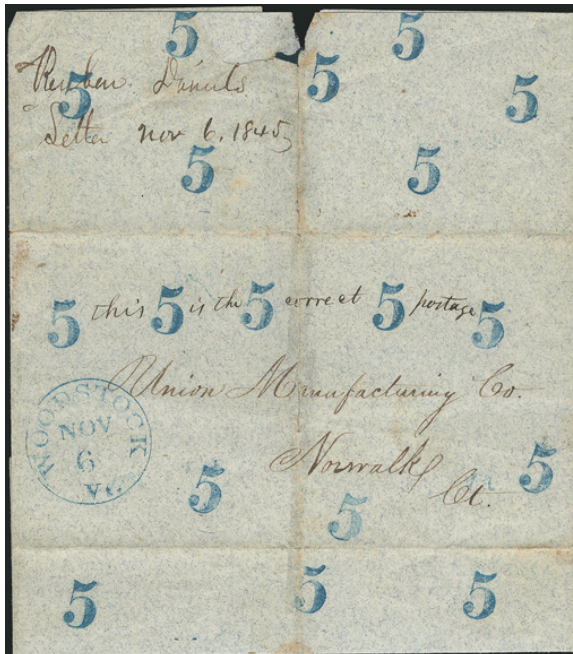 5 5
Reuben Daniels
5 5 5
Letter Nov 6, 1845
5 5
5 this 5 is the 5 correct 5 postage 5
Union Manufacturing Co.
WOODSTOCK Vt.
NOV
6
Norwalk
Ct.
5 5 5
5 5 5